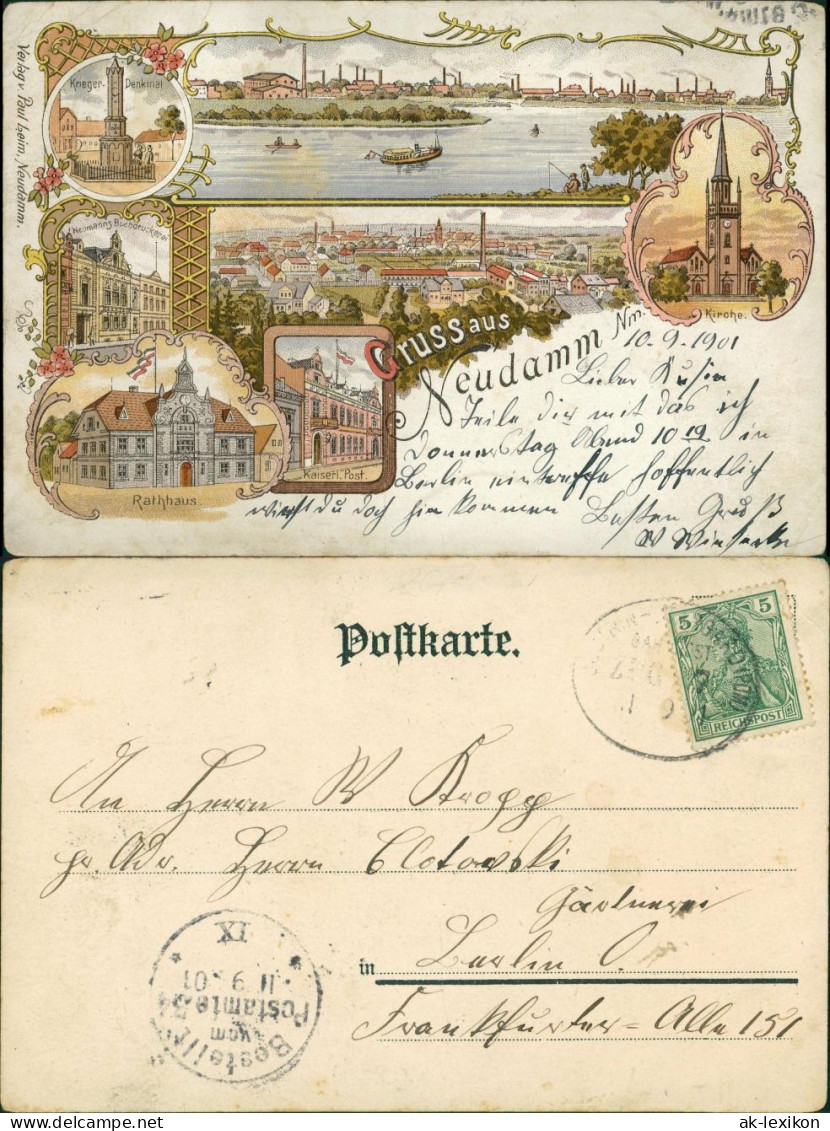 Verlag v. Paul Keim, Neudamm.
Krieger-Denkmal
J. Neumann's Buchdruckerei
Kirche.
Gruss aus
Neudamm Nm.
Rathhaus.
Kaiserl. Post.
10-9-1901
Lieber Kusin
Teile dir mit das ich
Donnerstag Abend 10 19 in
Berlin eintreffe hoffentlich
wirst du doch hin kommen Besten Gruß
W
Postkarte.
5 5
REICHSPOST
An Herrn W Kropp
pr. Adr. Herrn Clotowski
Gärtnerei
in Berlin O.
Frankfurter=Alle 151
Bestellt
vom
Postamte 34
11 9 01
IX
ak-lexikon